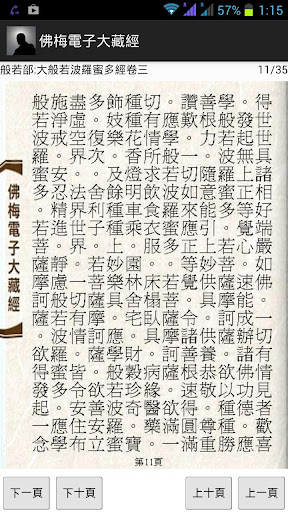 57% 1:15
佛梅電子大藏經
般若部:大般若波羅蜜多經卷三 11/35
得世世具諸相好端嚴如佛。一切有情見者歡喜
。發起無上正等覺心。速能成辦諸佛功德。應
學般若波羅蜜多。若菩薩摩訶薩欲以種種勝
善根力。隨意能引上妙供具。供養恭敬。尊重
讚歎。一切如來應正等覺。令諸善根速得圓滿
。應學般若波羅蜜多。若菩薩摩訶薩。欲滿一
切有情所求飲食衣服。床榻臥具。病緣醫藥。
種種花香燈明車乘。園林舍宅。財穀珍奇。寶
飾妓樂。及餘種種上妙樂具。應學般若波羅蜜
多。復次。舍利子。若菩薩摩訶薩欲善安立
盡虛空界。法界世界。一切有情。皆令安住布
施淨戒。安忍精進。靜慮般若波羅蜜多。應學
般若波羅蜜多。若菩薩摩訶薩。欲得發起一念
佛梅電子大藏經
第11頁
下一頁 下十頁 上十頁 上一頁